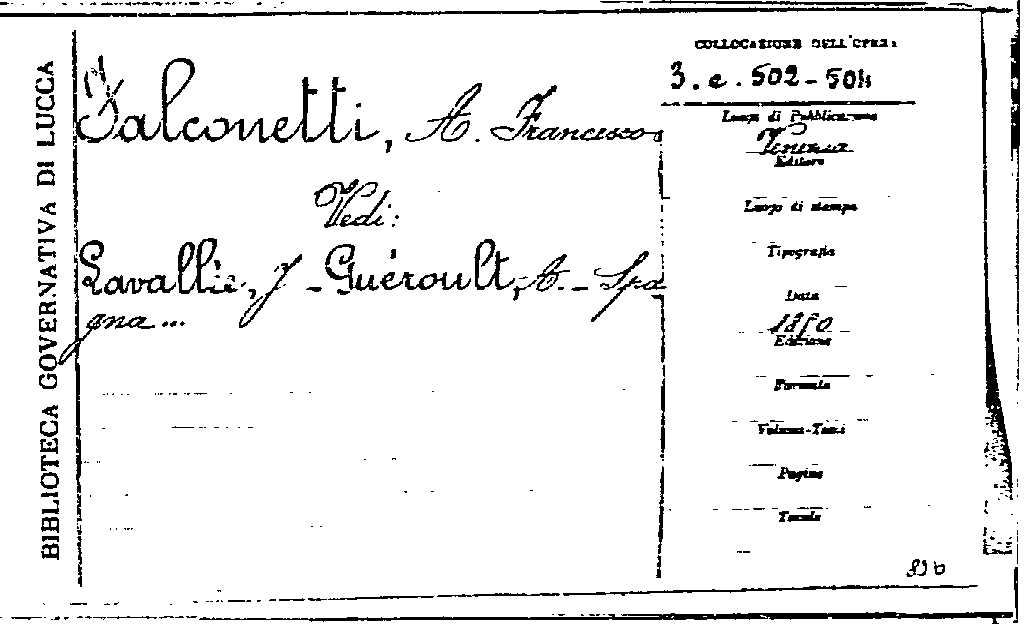 BIBLIOTECA GOVERNATIVA DI LUCCA
Falconetti, A. Francesco
Vedi:
Lavallée, J - Guéroult, A. - Spa
gna...
COLLOCAZIONE DELL'OPERA
3.e.502-504
Luogo di Pubblicazione
Venezia
Editore
Luogo di stampa
Tipografia
Data
1850
Edizione
Formato
Volume-Tomi
Pagine
Tavole